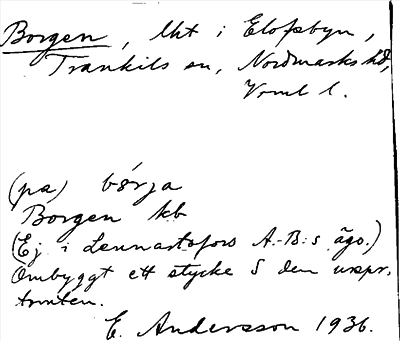 Borgen, lht i Elofsbyn,
Trankils sn, Nordmarks hd,
Vrml l.
(pa) börja
Borgen kb
(Ej i Lennartsfors A.-B:s ägo.)
Ombyggt ett stycke S den urspr.
tomten.
E. Andersson 1936.